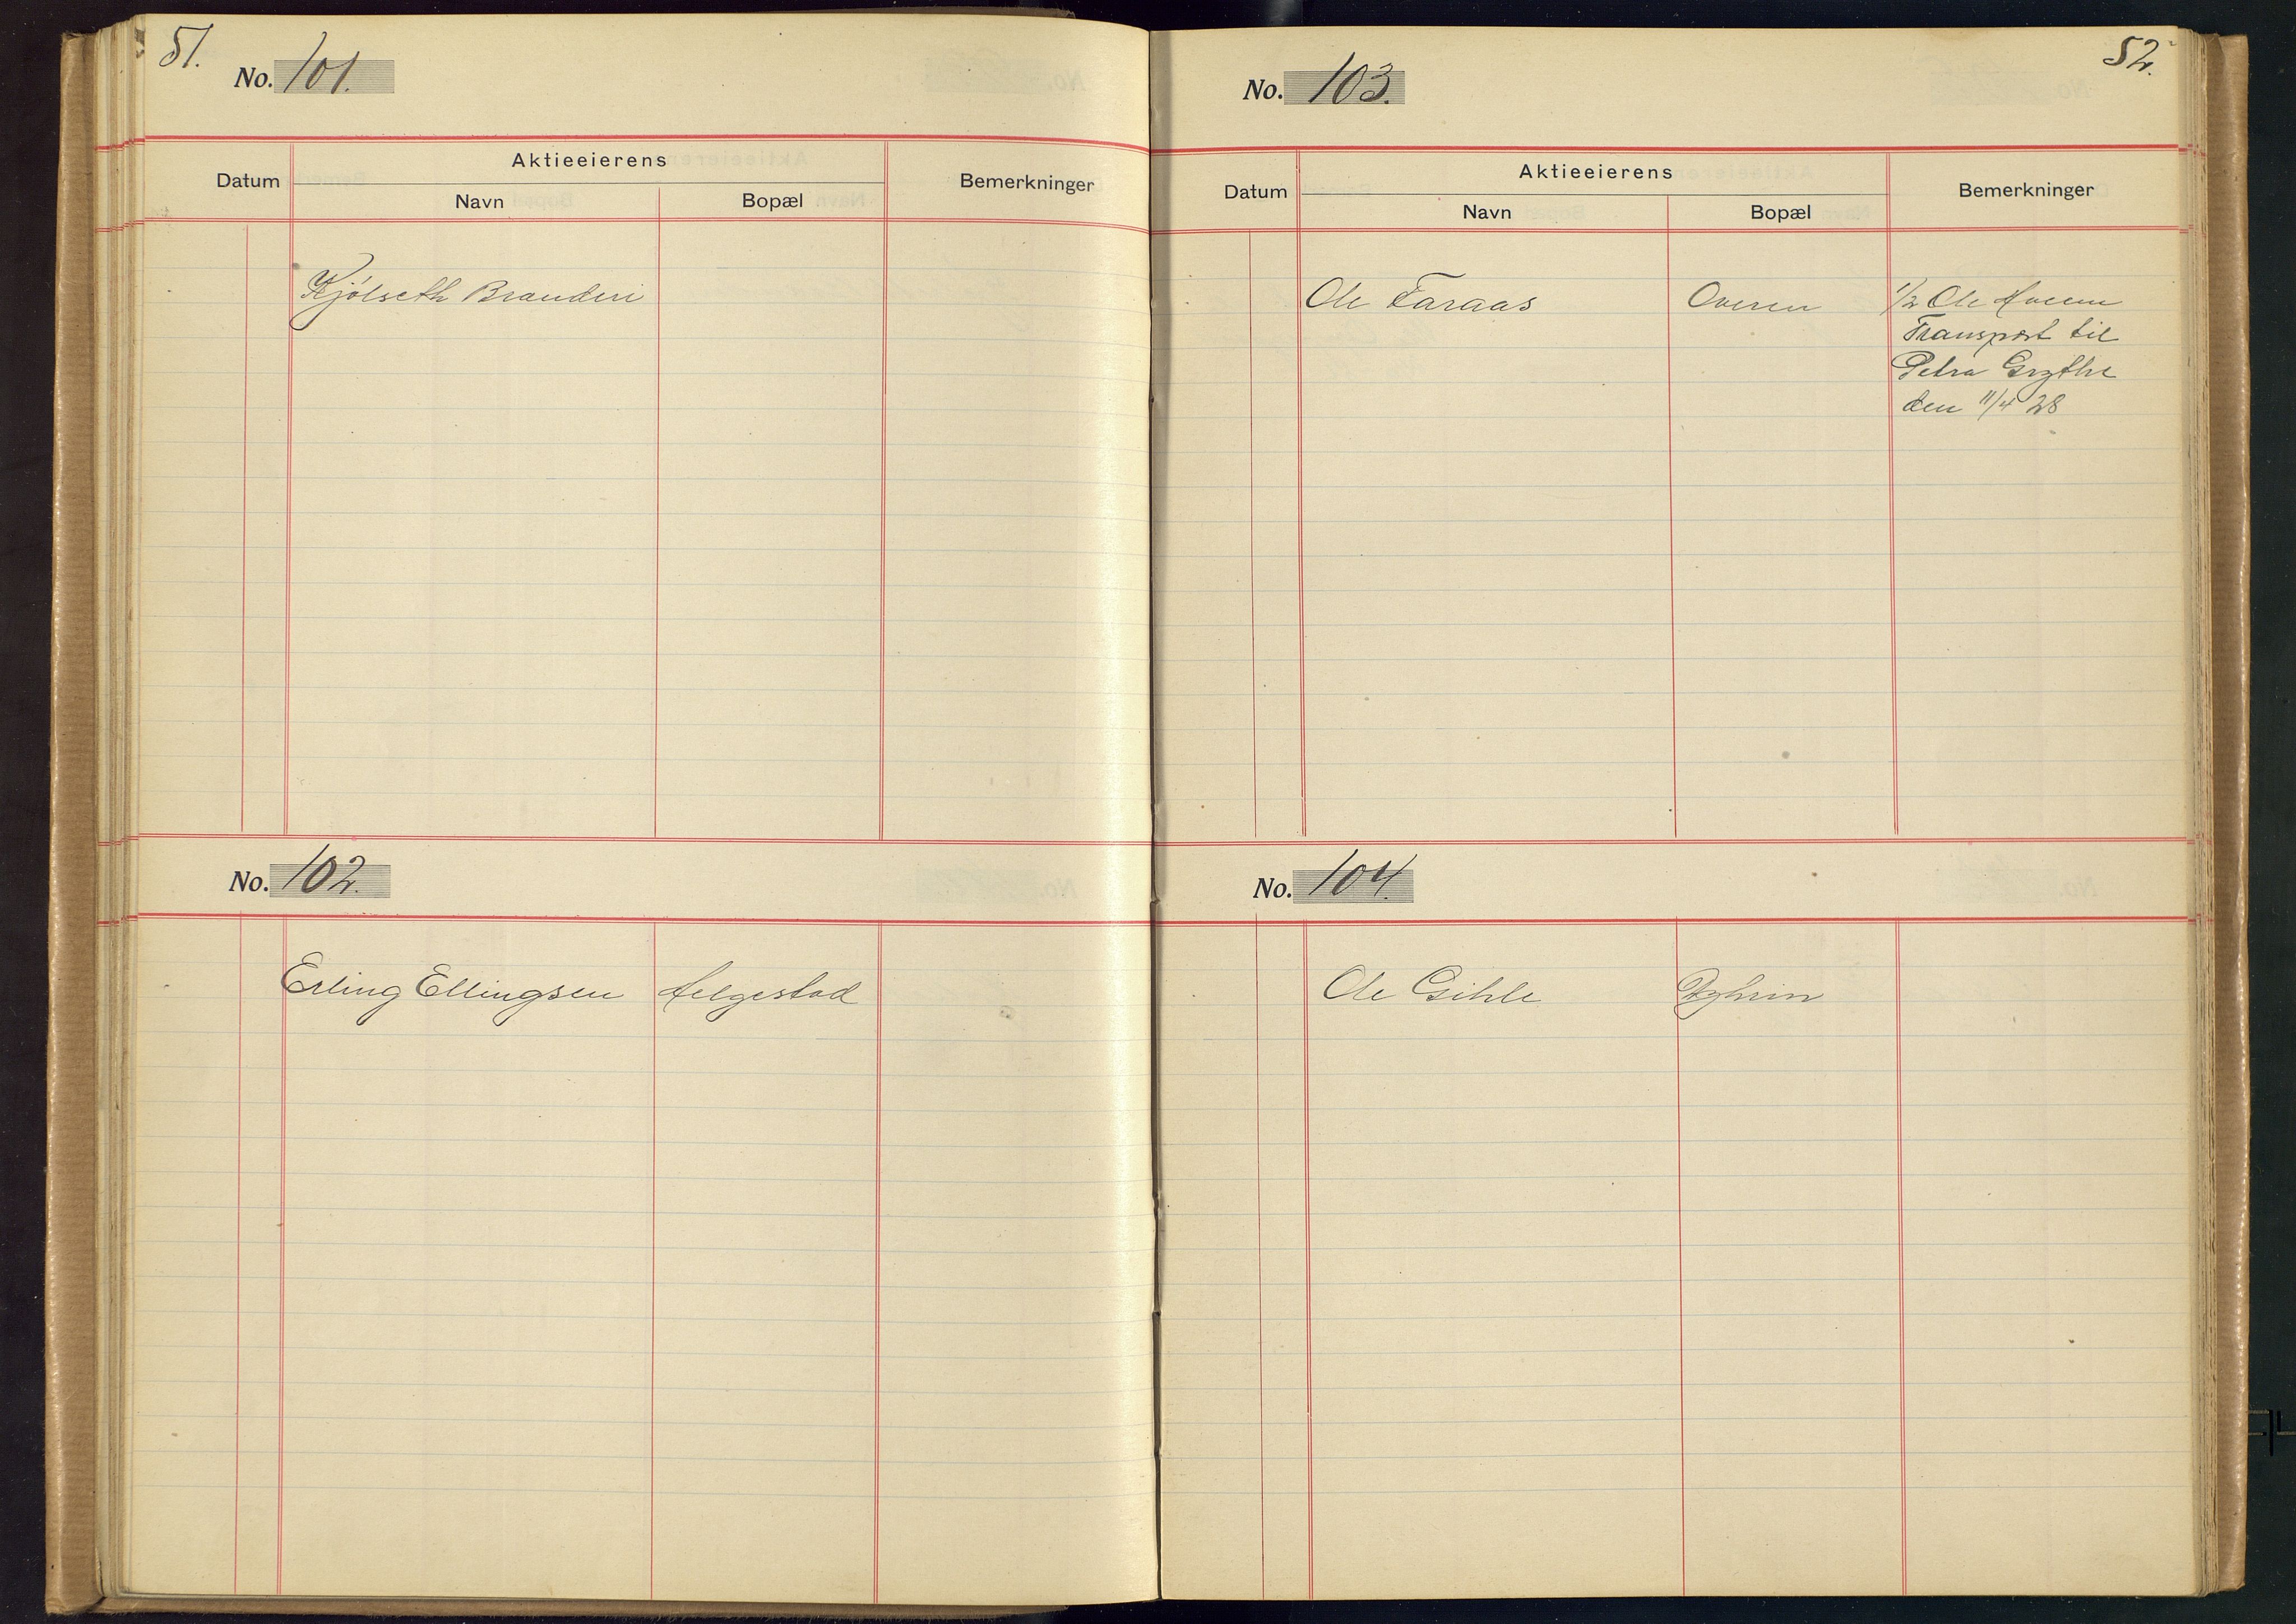 51.
No. 101.
Datum Aktieeierens Bemerkninger
Navn Bopæl
Kjölseth Branderi
No. 102.
Erling Ellingsen Helgestad
52.
No. 103.
Datum Aktieeierens Bemerkninger
Navn Bopæl
Ole Faraas Overen 1/2 Ole
Transport til
Petra Grythe
den 11/4 28
No. 104.
Ole Gihle Dyhrin